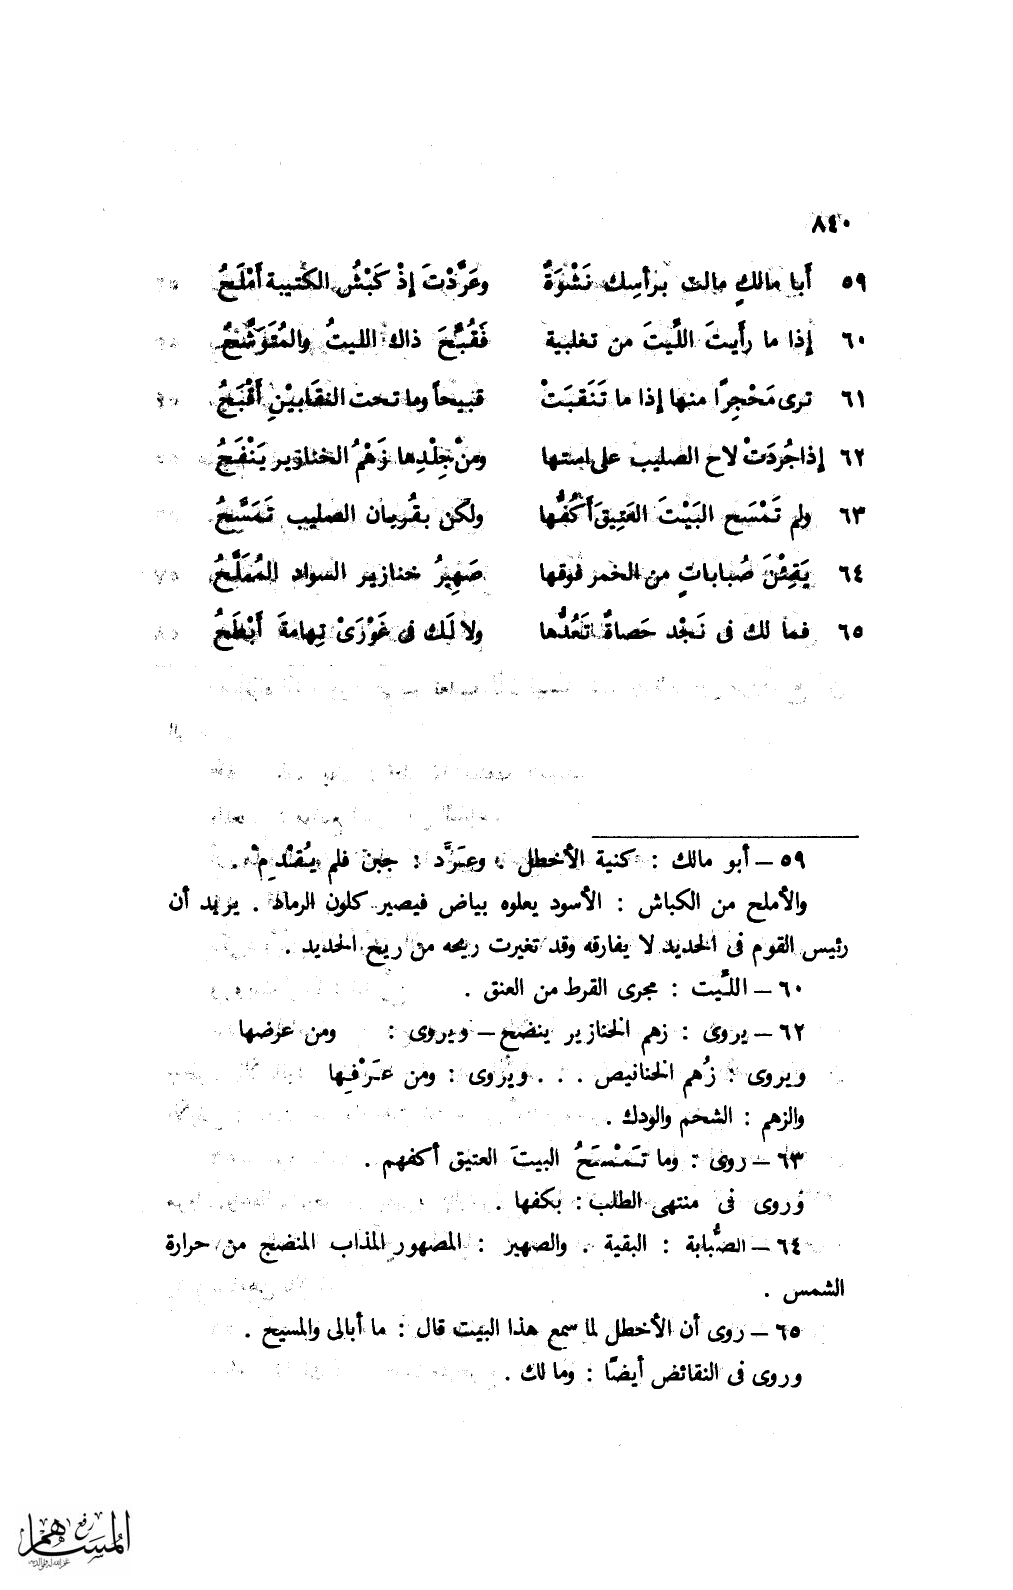 ٨٤٠
٥٩ أَبا مالكٍ مالت برأسِك نَشْوَةٌ وعَرَّدْتَ إذْ كَبْشُ الكتيبة أَمْلَحُ
٦٠ إذا ما رأَيتَ اللَّيتَ من تغلبية فَقُبِّحَ ذاك الليتُ والمُتَوَشَّحُ
٦١ ترى مَحْجِرًا منها إذا ما تَنَقبَتْ قبيحاً وما تحت النقَابيْنِ أَقْبَحُ
٦٢ إذا جُردَتْ لاح الصليب على استها ومنْ جِلْدِها زَهْمُ الخنازير يَنْفَحُ
٦٣ ولم تَمْسَح البَيْتَ العَتِيقَ أَكُفُّها ولكن بقُربان الصليب تَمَسَّحُ
٦٤ يَقِئْنَ صُباباتٍ من الخمر فوقها صَهِيرُ خنازير السواد المُمَلَّحُ
٦٥ فما لك فى نَجْد حَصاةٌ تَعُدُّها ولا لَك فى غَوْرَىْ تِهامةَ أَبْطَحُ
٥٩ – أبو مالك : كنية الأخطل . وعَرَّد : جبن فلم يُقْدِمْ .
والأملح من الكباش : الأسود يعلوه بياض فيصير كلون الرماد . يريد أن
رئيس القوم فى الحديد لا يفارقه وقد تغيرت ريحه من ريح الحديد .
٦٠ – اللَّيت : مجرى القرط من العنق .
٦٢ – يروى : زهم الخنازير ينضح – ويروى : ومن عرضها
ويروى : زُهم الخنانيص . . . ويروى : ومن عَرْفِها
والزهم : الشحم والودك .
٦٣ – روى : وما تَمْسَحُ البيتَ العتيق أكفهم .
وروى فى منتهى الطلب : بكفها .
٦٤ – الصُّبابة : البقية . والصهير : المصهور المذاب المنضج من حرارة
الشمس .
٦٥ – روى أن الأخطل لما سمع هذا البيت قال : ما أبالى والمسيح .
وروى فى النقائض أيضًا : وما لك .